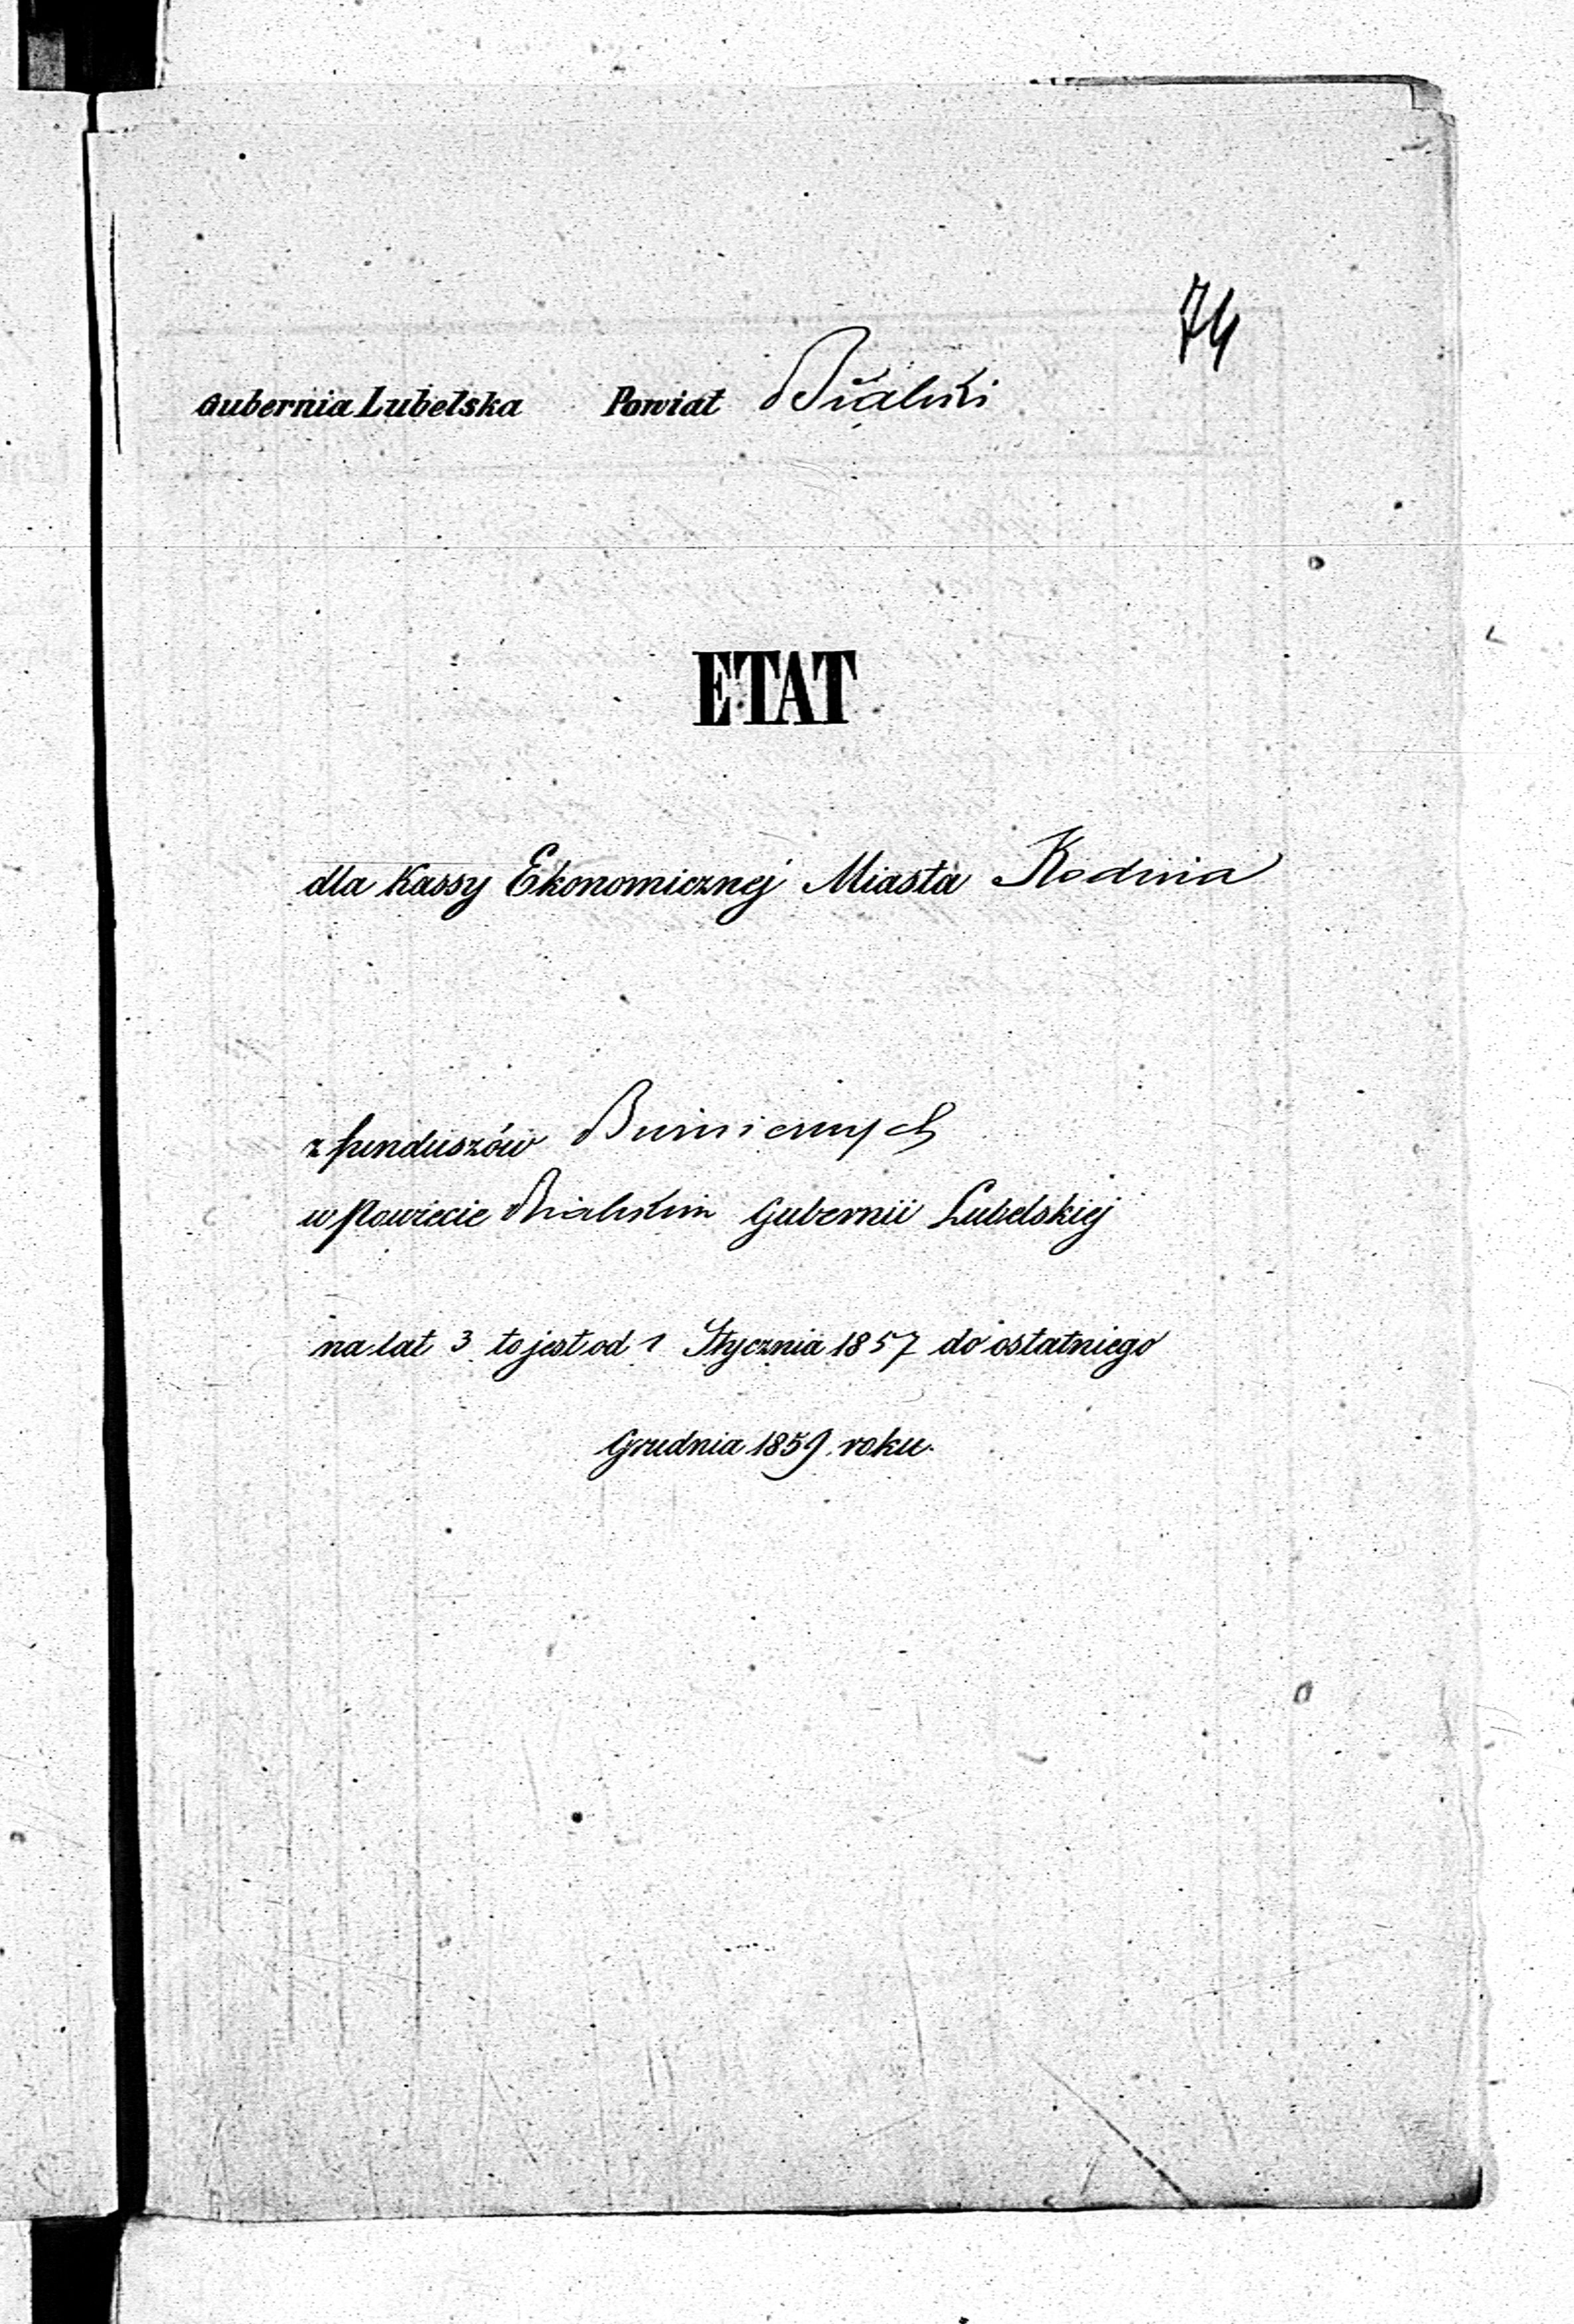 74
Gubernia Lubelska Powiat Bialski
ETAT
dla Kassy Ekonomicznej Miasta Kodnia
z funduszów Bużnicznych
w Powiecie Bialskim Gubernii Lubelskiej
na lat 3 to jest od 1 Stycznia 1857 do ostatniego
Grudnia 1859 roku.